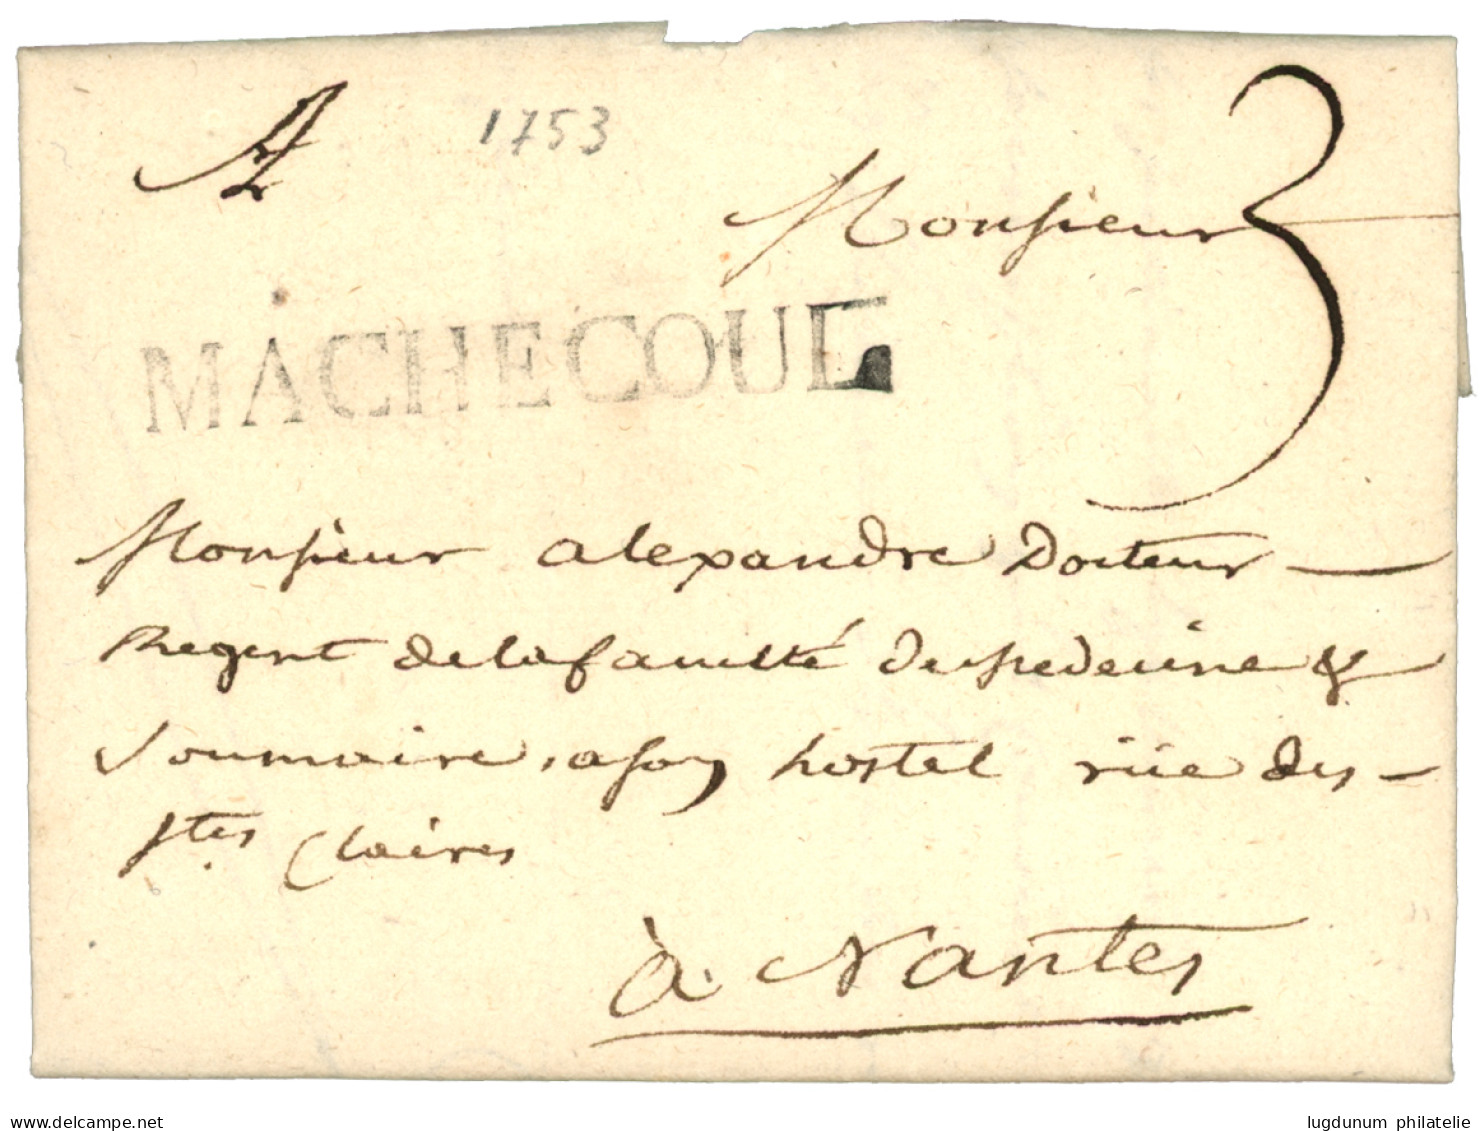 A
1753
3
Monsieur
MACHECOUL
Monsieur alexandre Docteur
Regent de la faculté de Medecine &
, a son hostel rüe des
stes Claires
à Nantes
delcampe.net
lugdunum philatelie